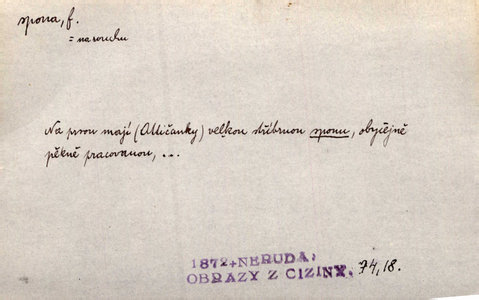 spona, f.
= na rouchu
Na prsou mají (Attičanky) velkou stříbrnou sponu, obyčejně
pěkně pracovanou, ...
1872+NERUDA:
OBRAZY Z CIZINY. 74,18.